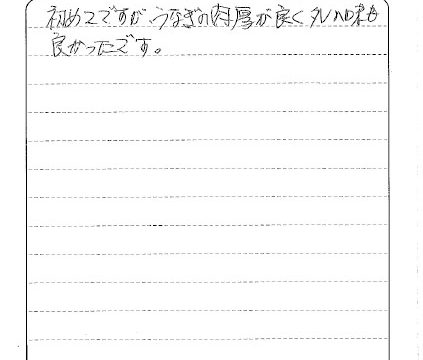 初めてですが うなぎの肉厚が良く タレの味も
良かったです。